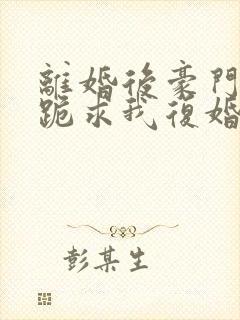 離婚後豪門
跪求我復婚
彭某生